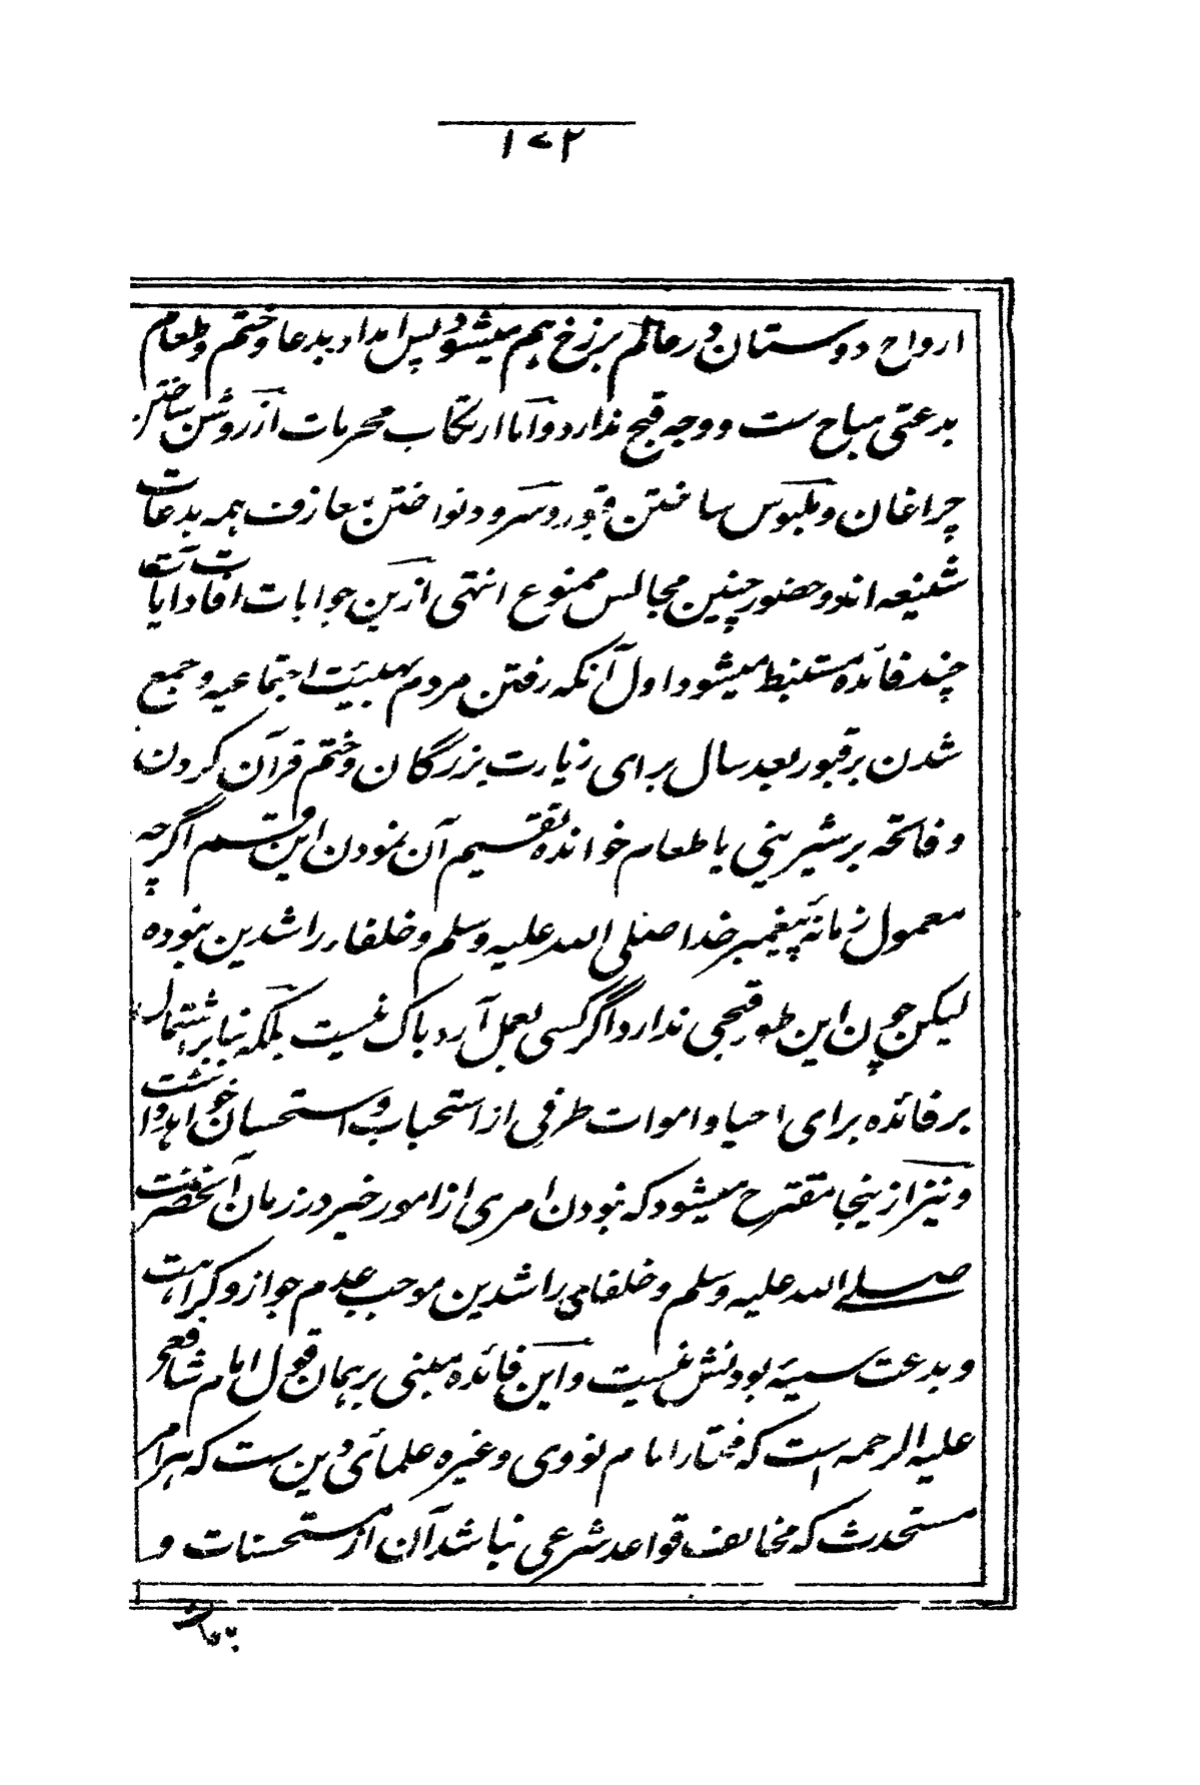 ۱۷۲
ارواح دوستان در عالم برزخ هم میشود پس امداد بدعا و ختم و طعام
بدعتی مباح ست و وجه قبح ندارد و اما ارتکاب محرمات از روشن ساختن
چراغان و ملبوس ساختن قبور و سرود نواختن معازف همه بدعات
شنیعه اند و حضور چنین مجالس ممنوع انتهی ازین جوابات افادات آیات
چند فائده مستنبط میشود اول آنکه رفتن مردم بهیئت اجتماعیه و جمع
شدن بر قبور بعد سال برای زیارت بزرگان و ختم قرآن کردن
و فاتحه بر شیرینی یا طعام خوانده تقسیم آن نمودن این قسم اگرچه
معمول زمانه پیغمبر خدا صلی الله علیه وسلم و خلفاء راشدین نبوده
لیکن چون این طور قبحی ندارد اگر کسی بعمل آرد باک نیست بلکه بنابر اشتمال
بر فائده برای احیا و اموات طرفی از استحباب و استحسان خواهد داشت
و نیز ازینجا مقترح میشود که نبودن امری از امور خیر در زمان آنحضرت
صلے الله علیه وسلم و خلفای راشدین موجب عدم جواز و کراهت
و بدعت سیئه بودنش نیست و این فائده مبنی بر همان قول امام شافعی
علیه الرحمه است که مختار امام نووی و غیره علمائی دین ست که هر امر
مستحدث که مخالف قواعد شرعی نباشد آن از مستحسنات و